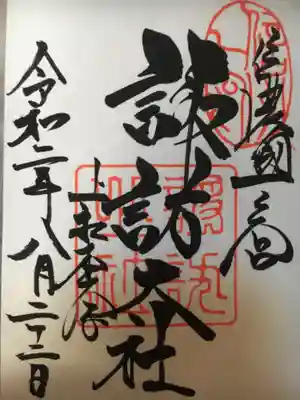 信濃國一之宮
諏訪大社
上社本宮
令和二年八月二十二日